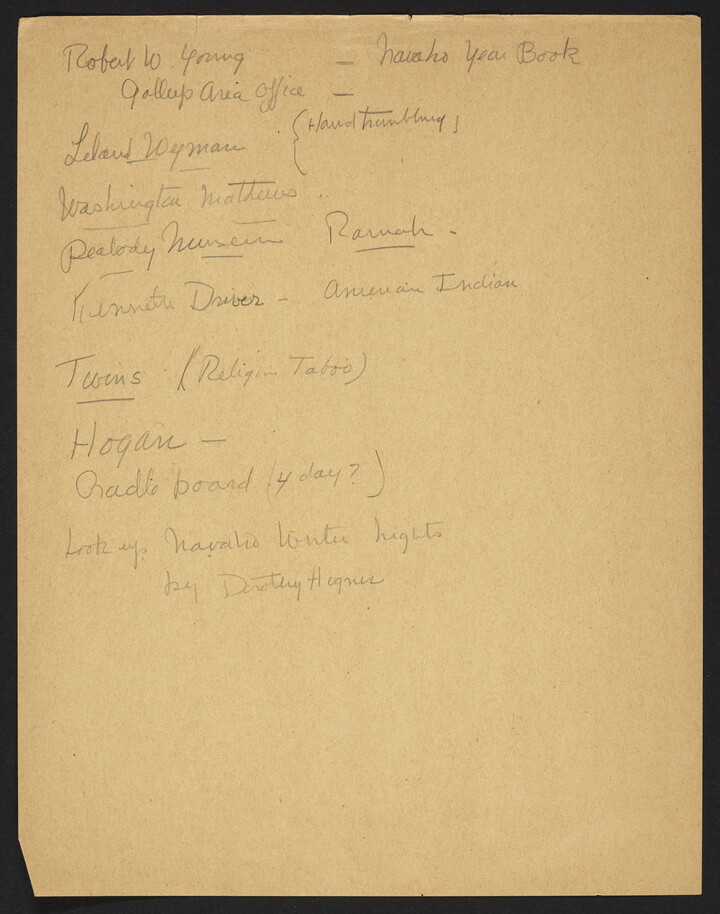 Robert W. Young — Navaho Year Book
Gallup Area Office —
Leland Wyman { Handtrembling
Washington Mathews
Peabody Museum Ramah -
Kenneth Driver - American Indian
Twins (Religion Taboo)
Hogan —
Cradle board (4 day?)
Look up Navaho Winter Nights
by Dorothy Hogner